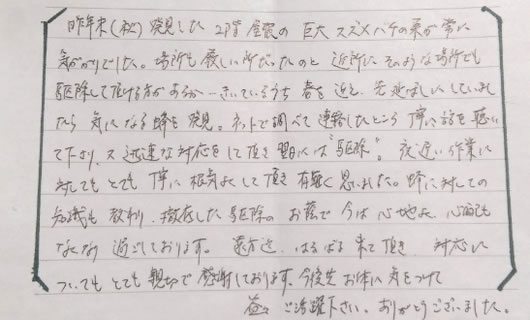 昨年末(秋)発見した2階屋根の巨大スズメバチの巣が常に
気がかりでした。場所も厳しい所だったのと近所にそのような場所でも
駆除して頂ける方があるか…きいているうち春を迎え、先延ばししていられ
たら気になる蜂を発見。ネットで調べて連絡したところ丁寧に話を聴い
て下さり、又迅速な対応をして頂き翌日には"駆除"。夜遅い作業に
対してもとても丁寧に根気よくして頂き有難く思いました。蜂に対しての
知識も教わり、徹底した駆除のお蔭で今は心地よく心配も
なくなり過ごしております。遠方迄、はるばる来て頂き、対応に
ついてもとても親切で感謝しております。今後先お体に気をつけて
益々ご活躍下さい。ありがとうございました。